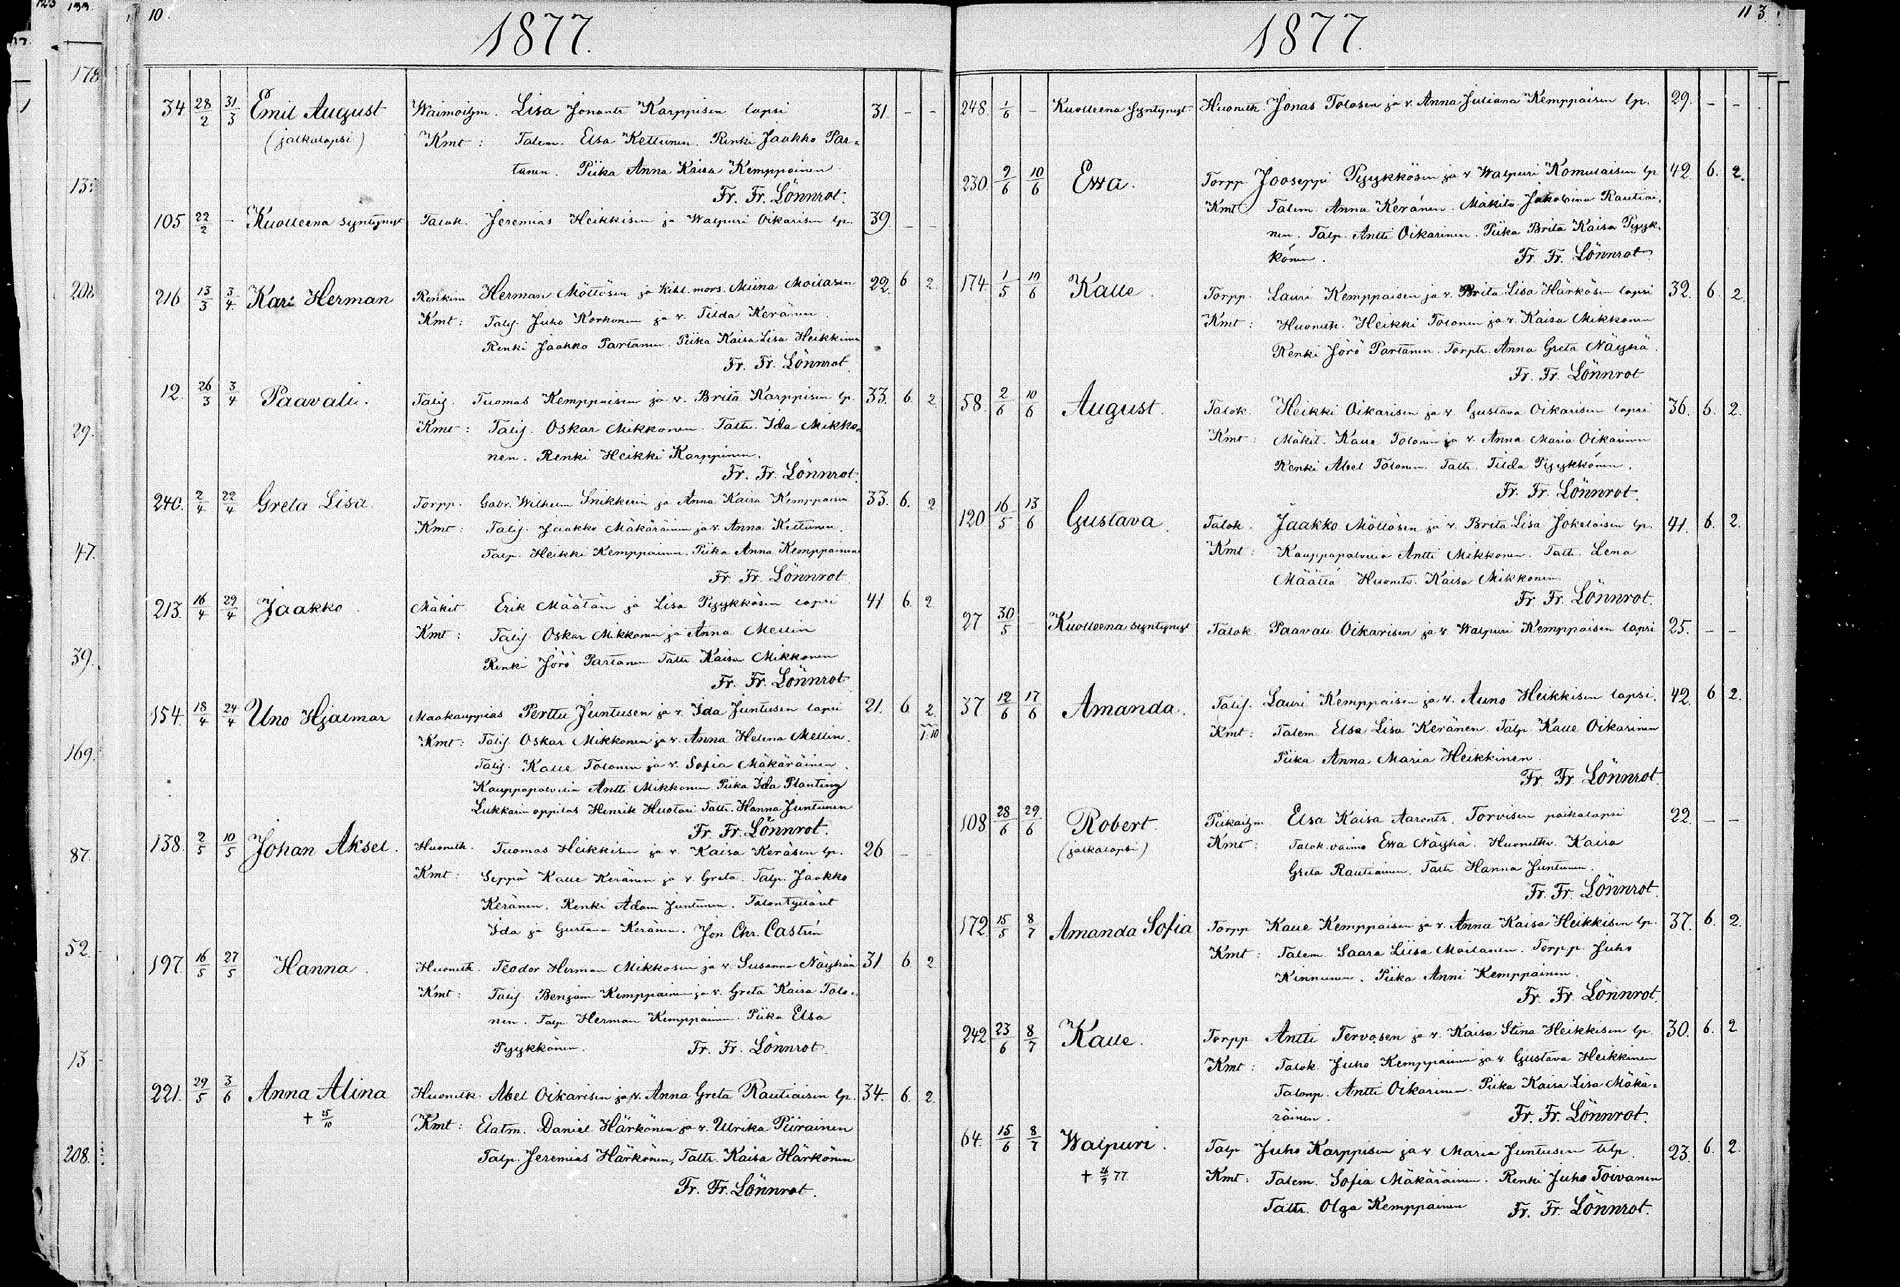 10.
1877.
34. 28/2 31/3 Emil August Waimoizm. Lisa Jonant. Karppisen lapsi 31. – –
(jalkalapsi) Kmt: Talem. Elsa Kettunen. Renki Jaakko Par-
tanen. Piika Anna Kaisa Kemppainen.
Fr. Fr. Lönnrot.
105 22/2 – Kuolleena syntynyt Talok. Jeremias Heikkisen ja Walpuri Oikarisen lp. 39 – –
216 13/3 3/4 Karl Herman Renkim Herman Möttösen ja kihl. mors. Miina Moilasen 22. 6 2.
Kmt: Talij. Juho Korhonen ja v. Tilda Keränen.
Renki Jaakko Partanen. Piika Kaisa Lisa Heikkinen
Fr. Fr. Lönnrot.
12. 26/3 3/4 Paavali. Talij. Tuomas Kemppaisen ja v. Brita Karppisen lp. 33. 6. 2
Kmt: Talij. Oskar Mikkonen. Taltr. Ida Mikko-
nen. Renki Heikki Karppinen.
Fr. Fr. Lönnrot.
240. 2/4 22/4 Greta Lisa. Torpp. Gabr. Wilhelm Snikkerin ja Anna Kaisa Kemppaisen 33. 6. 2
Kmt: Talij. Jaakko Mäkäräinen ja v. Anna Kettunen.
Talp. Heikki Kemppainen. Piika Anna Kemppainen
Fr. Fr. Lönnrot
213. 16/4 29/4 Jaakko. Mäkit. Erik Määtän ja Lisa Pyykkösen lapsi 41 6. 2
Kmt: Talij Oskar Mikkonen ja Anna Mellin
Renki Jörö Partanen Taltr. Kaisa Mikkonen
Fr. Fr. Lönnrot
154. 18/4 24/4 Uno Hjalmar Maakauppias Perttu Juntusen ja v. Ida Juntusen lapsi 21. 6 2.
Kmt: Talij. Oskar Mikkonen ja v. Anna Helena Mellin. 1:10
Talij. Kalle Tolonen ja v. Sofia Mäkäräinen.
Kauppapalvelia Antti Mikkonen Piika Ida Planting
Lukkarin oppilas Henrik Huotari Taltr. Hanna Juntunen
Fr. Fr. Lönnrot.
138. 2/5 10/5 Johan Aksel. Huonetk. Tuomas Heikkisen ja v. Kaisa Keräsen lp. 26 – –
Kmt: Seppä Kalle Keränen ja v. Greta. Talp. Jaakko
Keränen. Renki Adam Juntunen. Talontyttäret
Ida ja Gustava Keränen. Joh. Chr. Castrén
197. 16/5 27/5 Hanna. Huonetk. Teodor Herman Mikkosen ja v. Susanna Näyhän 31. 6 2
Kmt: Talij. Benjam Kemppainen ja v. Greta Kaisa Tolo-
nen. Talp. Herman Kemppainen. Piika Elsa
Pyykkönen. Fr. Fr. Lönnrot.
221. 29/5 3/6 Anna Alina Huonetk. Abel Oikarisen ja v. Anna Greta Rautiaisen lp. 34. 6. 2.
† 15/10 Kmt: Elatm. Daniel Härkönen ja v. Ulrika Piirainen
Talp. Jeremias Härkönen, Taltr. Kaisa Härkönen
Fr. Fr. Lönnrot.
11
1877.
248. 1/6 – Kuolleena syntynyt Huonetk Jonas Tolosen ja v. Anna Juliana Kemppaisen lp. 29. – –
230. 9/6 10/6 Ewa. Torpp. Jooseppi Pyykkösen ja v Walpuri Komulaisen lp 42. 6. 2.
Kmt Talem. Anna Keränen. Mäkits. Jakobina Rautiai-
nen. Talp. Antti Oikarinen. Piika Brita Kaisa Pyyk-
könen. Fr. Fr. Lönnrot
174. 1/5 10/6 Kalle. Torpp. Lauri Kemppaisen ja v. Brita Lisa Härkösen lapsi 32. 6. 2
Kmt: Huonetk. Heikki Tolonen ja v. Kaisa Mikkonen
Renki Jörö Partanen. Torptr. Anna Greta Näyhä.
Fr. Fr. Lönnrot
58. 2/6 10/6 August. Talok. Heikki Oikarisen ja v. Gustava Oikarisen lapsi 36. 6. 2.
Kmt: Mäkit. Kalle Tolonen ja v. Anna Maria Oikarinen
Renki Abel Tolonen. Taltr. Tilda Pyykkönen.
Fr. Fr. Lönnrot.
120 16/5 13/6 Gustava. Talok. Jaakko Möttösen ja v. Brita Lisa Jokelaisen lp. 41. 6. 2.
Kmt: Kauppapalvelia Antti Mikkonen. Taltr. Lena
Määttä. Huonetr. Kaisa Mikkonen
Fr. Fr. Lönnrot.
27 30/5 – Kuolleena syntynyt Talok. Paavali Oikarisen ja v Walpuri Kemppaisen lapsi 25. – –
37 12/6 17/6 Amanda. Talij. Lauri Kemppaisen ja v. Auno Heikkisen lapsi. 42. 6 2.
Kmt: Talem. Elsa Lisa Keränen. Talp. Kalle Oikarinen
Piika Anna Maria Heikkinen.
Fr. Fr. Lönnrot
108 28/6 29/6 Robert. Piikaizm. Elsa Kaisa Aarontr. Torvisen poikalapsi 22. – –
(jalkalapsi) Kmt: Talok. vaimo Ewa Näyhä. Huonetkv. Kaisa
Greta Rautiainen. Taltr. Hanna Juntunen.
Fr. Fr. Lönnrot
172. 15/5 8/7 Amanda Sofia Torpp Kalle Kemppaisen ja v. Anna Kaisa Heikkisen lp. 37. 6 2.
Kmt: Talem Saara Liisa Moilanen. Torpp. Juho
Kinnunen. Piika Anni Kemppainen.
Fr. Fr. Lönnrot.
242 23/6 8/7 Kalle. Torpp Antti Tervosen ja v. Kaisa Stina Heikkisen lp. 30. 6. 2
Kmt: Talok. Juho Kemppainen ja v Gustava Heikkinen
Talonp. Antti Oikarinen. Piika Kaisa Lisa Mäkä-
räinen. Fr. Fr. Lönnrot.
64. 15/6 8/7 Walpuri. Talp Juho Karppisen ja v Maria Juntusen lp. 23. 6. 2.
Kmt: Talem. Sofia Mäkäräinen. Renki Juho Toivanen
Taltr. Olga Kemppainen Fr. Fr. Lönnrot.